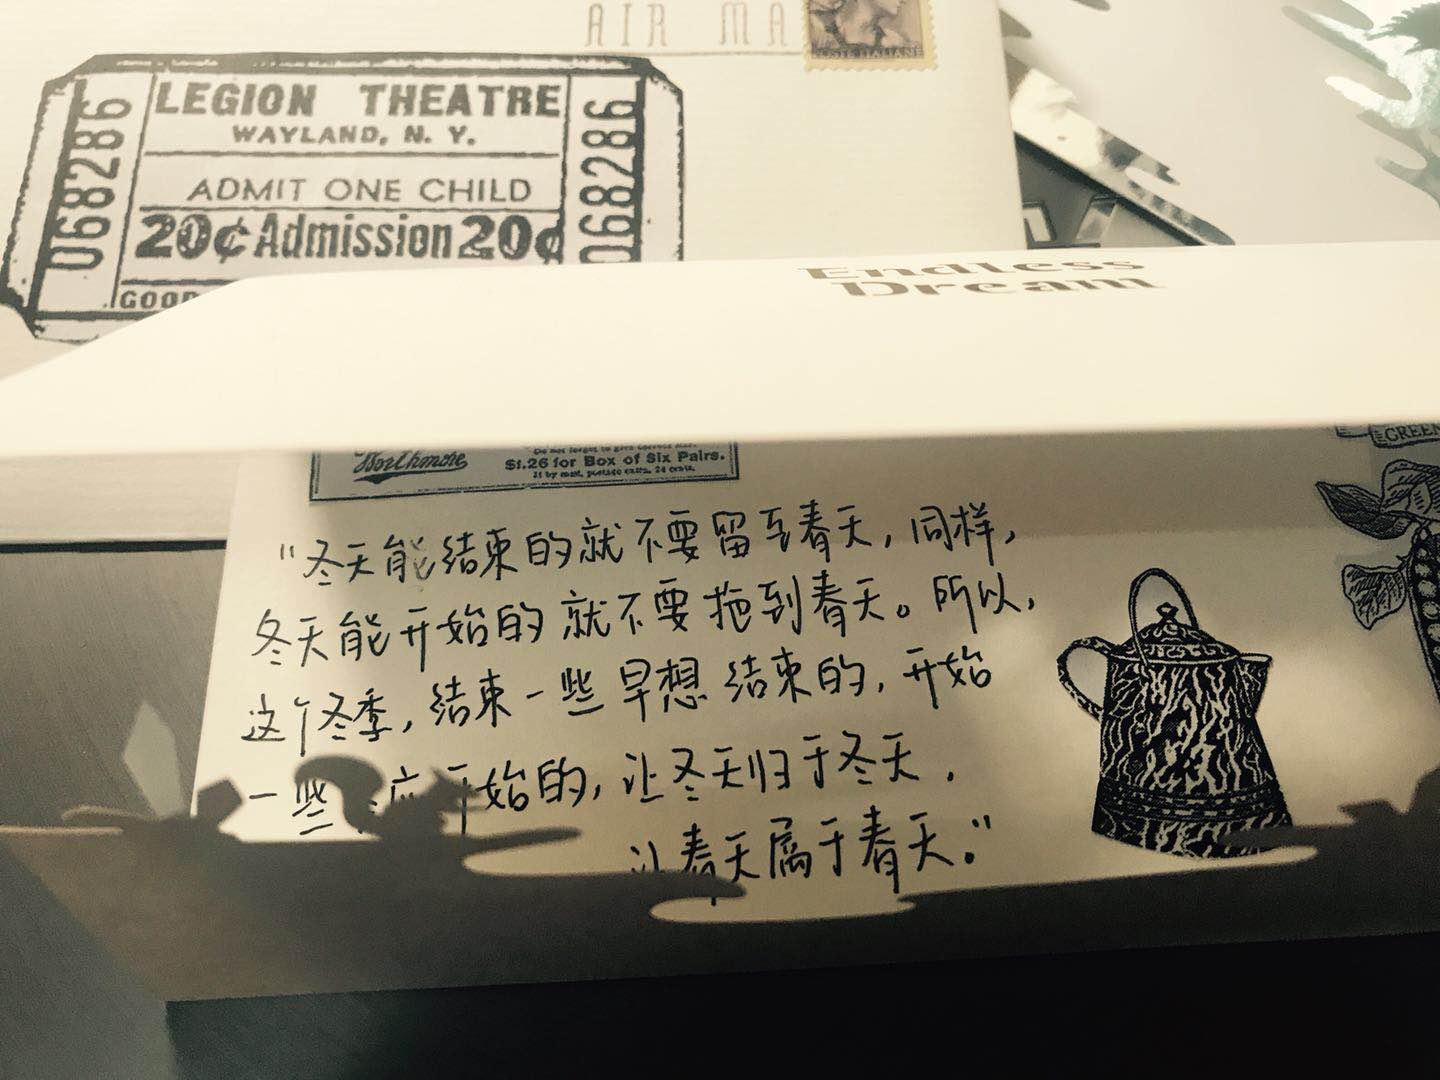 AIR MA
POSTE ITALIANE
LEGION THEATRE
WAYLAND, N. Y.
ADMIT ONE CHILD
20¢ Admission 20¢
GOOD
068286
068286
Endless
Dream
Northmore
$1.26 for Box of Six Pairs.
GREEN
“冬天能结束的就不要留到春天，同样，
冬天能开始的就不要拖到春天。所以，
这个冬季，结束一些早想结束的，开始
一些 应开始的，让冬天归于冬天，
让春天属于春天。”